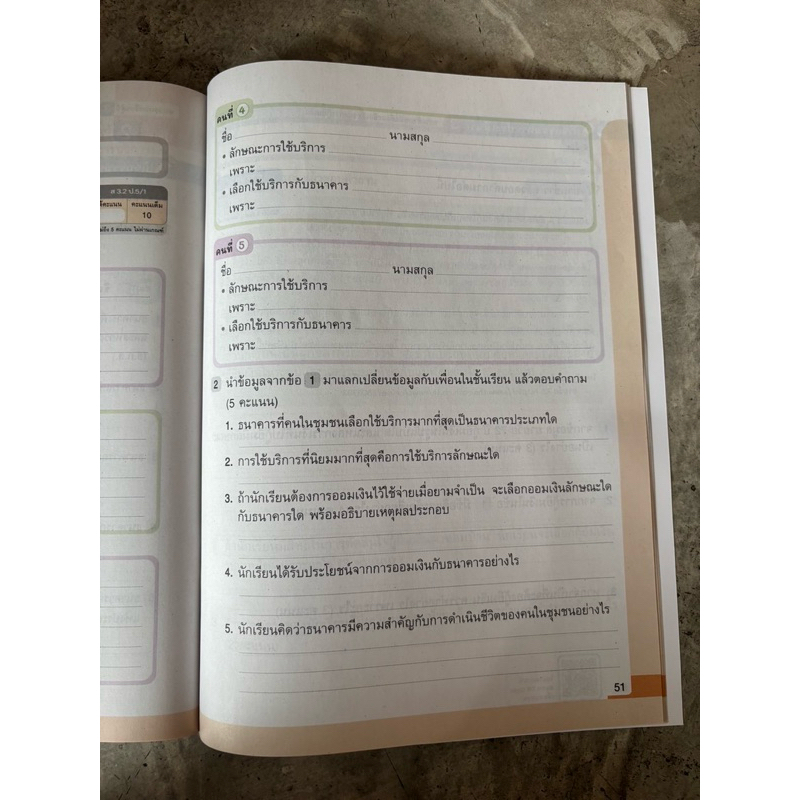 ส 3.2 ป.5/1
คะแนนเต็ม
10
คนที่ 4
ชื่อ นามสกุล
• ลักษณะการใช้บริการ
เพราะ
• เลือกใช้บริการกับธนาคาร
เพราะ
คนที่ 5
ชื่อ นามสกุล
• ลักษณะการใช้บริการ
เพราะ
• เลือกใช้บริการกับธนาคาร
เพราะ
2 นำข้อมูลจากข้อ 1 มาแลกเปลี่ยนข้อมูลกับเพื่อนในชั้นเรียน แล้วตอบคำถาม
(5 คะแนน)
1. ธนาคารที่คนในชุมชนเลือกใช้บริการมากที่สุดเป็นธนาคารประเภทใด
2. การใช้บริการที่นิยมมากที่สุดคือการใช้บริการลักษณะใด
3. ถ้านักเรียนต้องการออมเงินไว้ใช้จ่ายเมื่อยามจำเป็น จะเลือกออมเงินลักษณะใด
กับธนาคารใด พร้อมอธิบายเหตุผลประกอบ
4. นักเรียนได้รับประโยชน์จากการออมเงินกับธนาคารอย่างไร
5. นักเรียนคิดว่าธนาคารมีความสำคัญกับการดำเนินชีวิตของคนในชุมชนอย่างไร
51